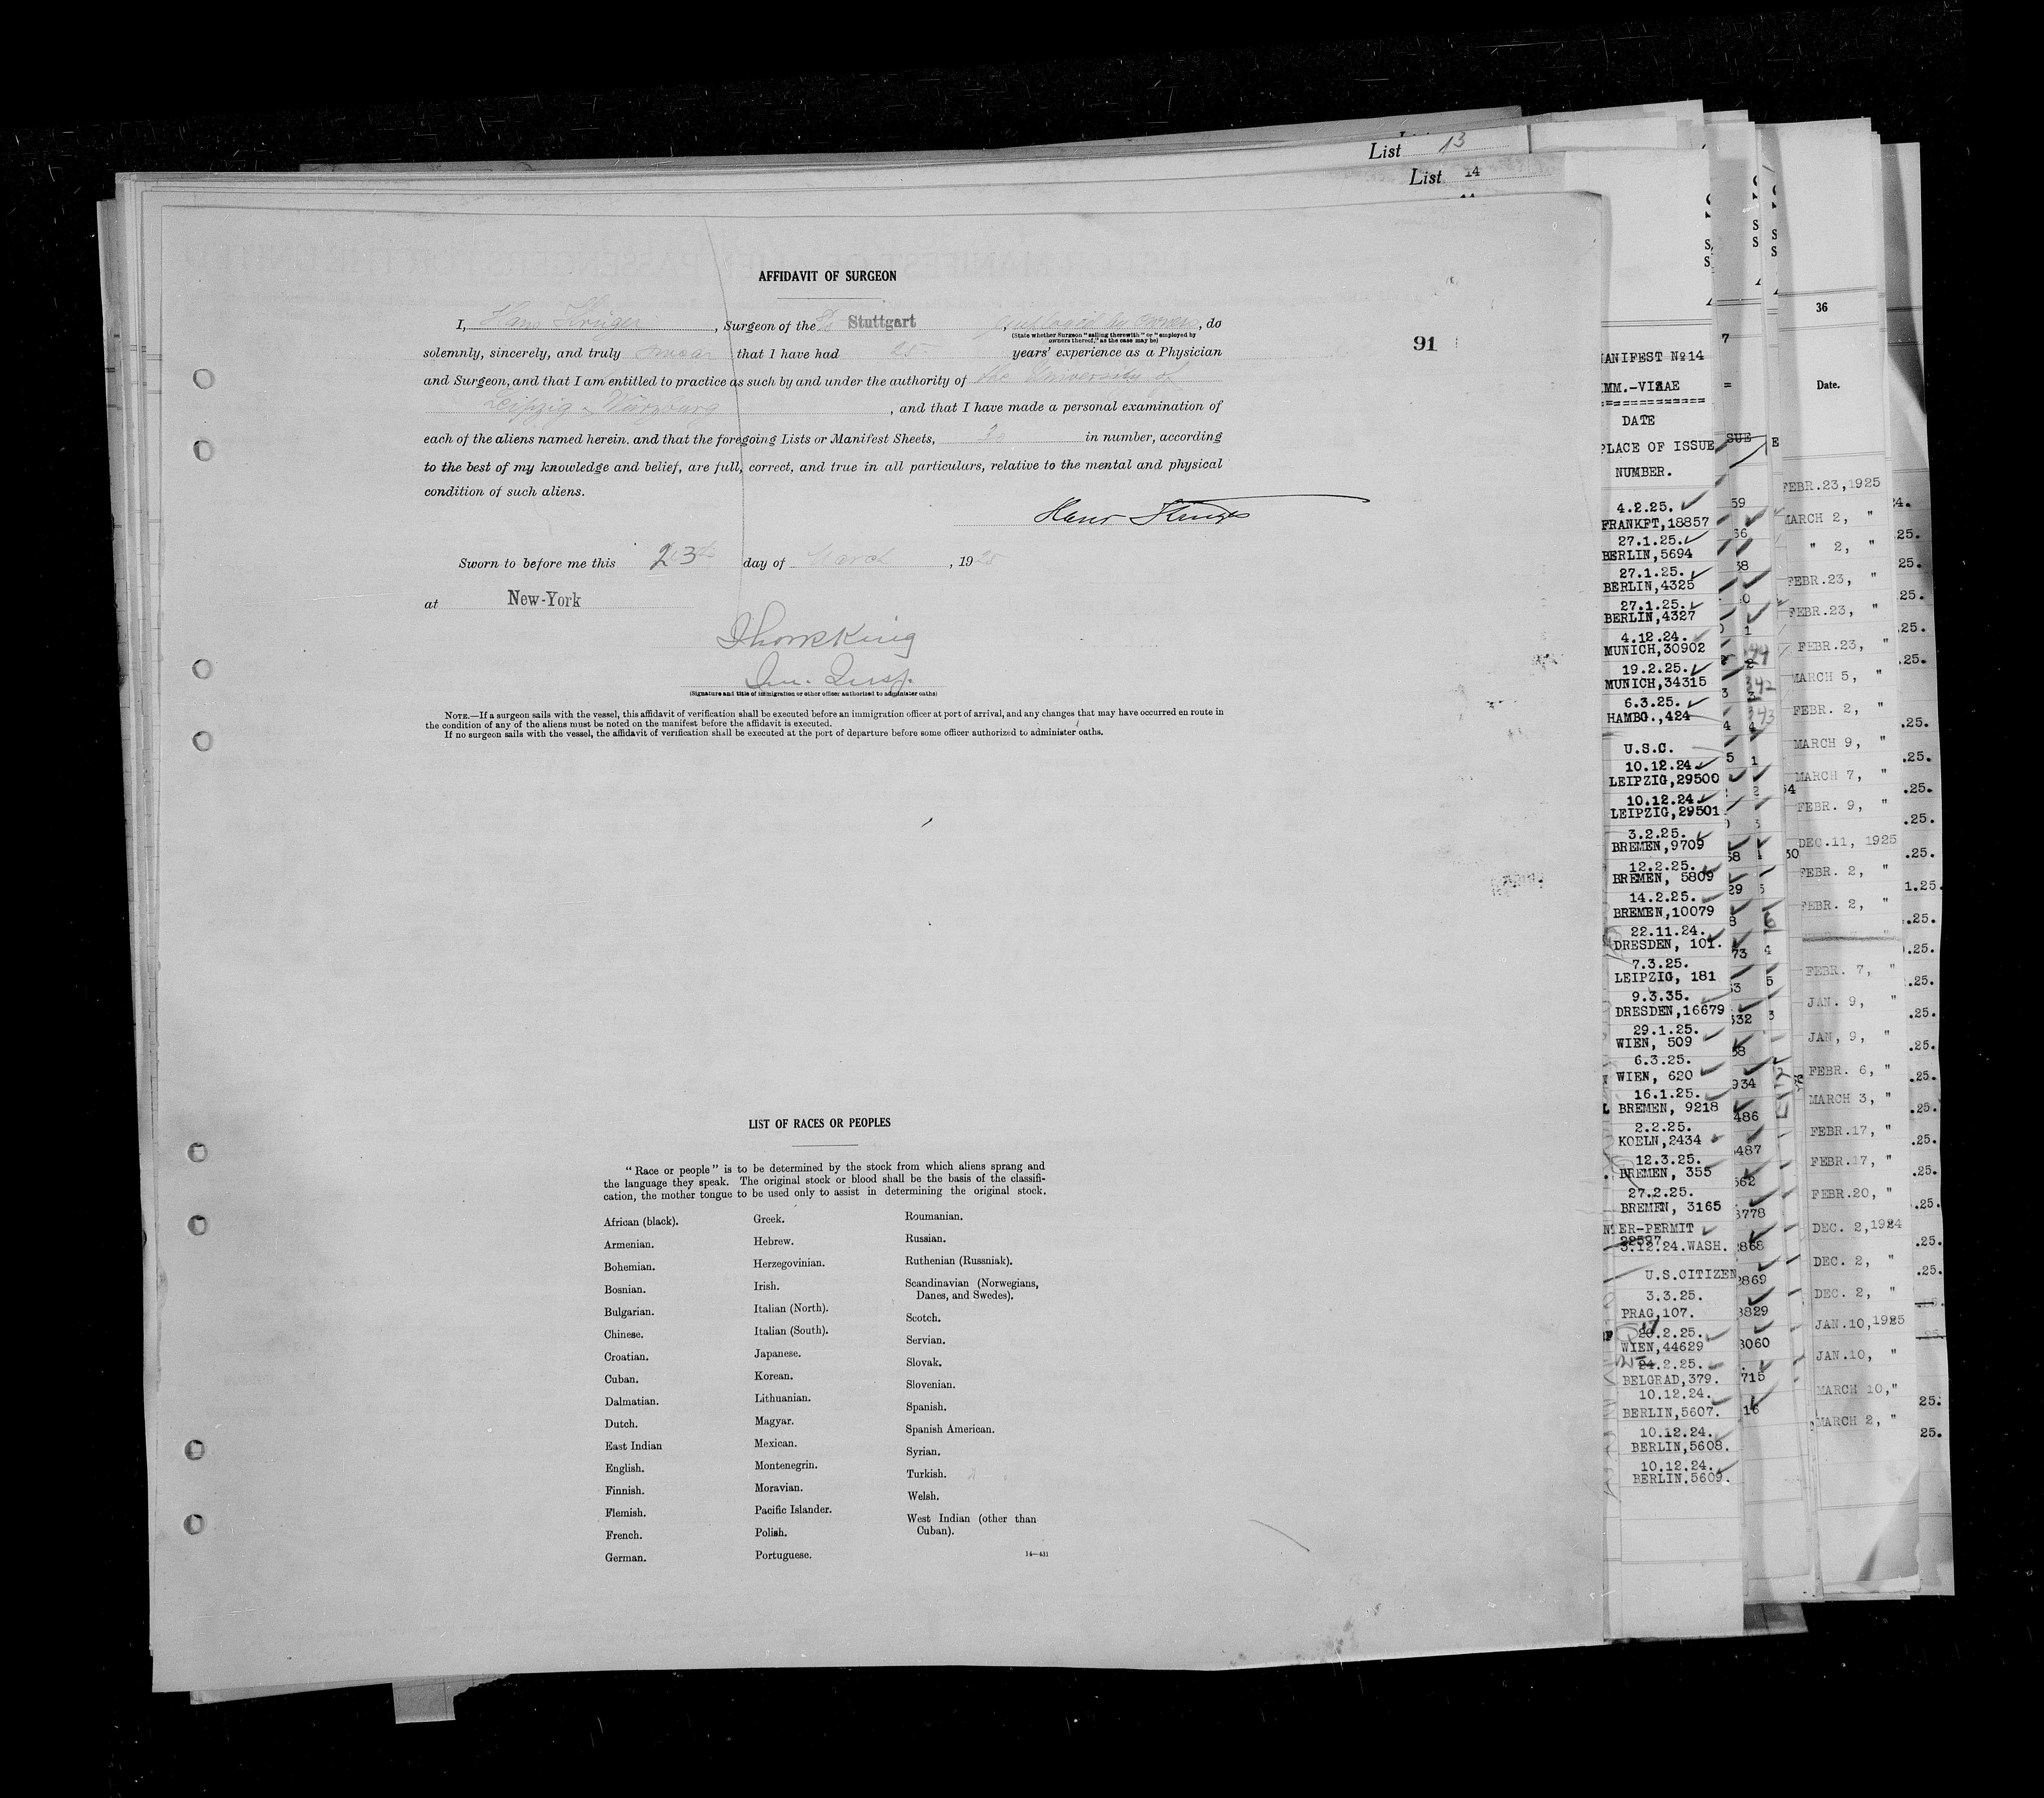 List 13
List 14
AFFIDAVIT OF SURGEON
I, Hans Krüger, Surgeon of the SS Stuttgart, employed by owners, do
(State whether Surgeon "sailing therewith" or "employed by
owners thereof," as the case may be)
solemnly, sincerely, and truly swear that I have had 25 years' experience as a Physician
91
and Surgeon, and that I am entitled to practice as such by and under the authority of the University of
Leipzig - Würzburg, and that I have made a personal examination of
each of the aliens named herein, and that the foregoing Lists or Manifest Sheets, in number, according
to the best of my knowledge and belief, are full, correct, and true in all particulars, relative to the mental and physical
condition of such aliens.
Hans Krüger
Sworn to before me this 23d day of March, 1925
at New-York
Imm. Insp.
(Signature and title of immigration or other officer authorized to administer oaths)
NOTE.—If a surgeon sails with the vessel, this affidavit of verification shall be executed before an immigration officer at port of arrival, and any changes that may have occurred en route in
the condition of any of the aliens must be noted on the manifest before the affidavit is executed.
If no surgeon sails with the vessel, the affidavit of verification shall be executed at the port of departure before some officer authorized to administer oaths.
LIST OF RACES OR PEOPLES
"Race or people" is to be determined by the stock from which aliens sprang and
the language they speak. The original stock or blood shall be the basis of the classifi-
cation, the mother tongue to be used only to assist in determining the original stock.
African (black).
Armenian.
Bohemian.
Bosnian.
Bulgarian.
Chinese.
Croatian.
Cuban.
Dalmatian.
Dutch.
East Indian
English.
Finnish.
Flemish.
French.
German.
Greek.
Hebrew.
Herzegovinian.
Irish.
Italian (North).
Italian (South).
Japanese.
Korean.
Lithuanian.
Magyar.
Mexican.
Montenegrin.
Moravian.
Pacific Islander.
Polish.
Portuguese.
Roumanian.
Russian.
Ruthenian (Russniak).
Scandinavian (Norwegians,
Danes, and Swedes).
Scotch.
Servian.
Slovak.
Slovenian.
Spanish.
Spanish American.
Syrian.
Turkish.
Welsh.
West Indian (other than
Cuban).
14—431
MANIFEST No 14
IMM.-VISAE
DATE
PLACE OF ISSUE
NUMBER.
4.2.25.
FRANKFT,18857
27.1.25.
BERLIN,5694
27.1.25.
BERLIN,4325
27.1.25.
BERLIN,4327
4.12.24.
MUNICH,30902
19.2.25.
MUNICH,34315
6.3.25.
HAMBG.,424
U.S.C.
10.12.24
LEIPZIG,29500
10.12.24
LEIPZIG,29501
3.2.25.
BREMEN,9709
12.2.25.
BREMEN, 5809
14.2.25.
BREMEN,10079
22.11.24.
DRESDEN, 101.
7.3.25.
LEIPZIG, 181
9.3.35.
DRESDEN,16679
29.1.25.
WIEN, 509
6.3.25.
WIEN, 620
16.1.25.
BREMEN, 9218
2.2.25.
KOELN,2434
12.3.25.
BREMEN, 355
27.2.25.
BREMEN, 3165
ER-PERMIT
22597
3.12.24.WASH.
U.S.CITIZEN
3.3.25.
PRAG,107.
20.2.25.
WIEN,44629
24.2.25.
BELGRAD,379.
10.12.24.
BERLIN,5607.
10.12.24.
BERLIN,5608.
10.12.24.
BERLIN,5609.
36
Date.
FEBR.23,1925
MARCH 2, "
" 2, "
FEBR.23, "
FEBR.23, "
FEBR.23, "
MARCH 5, "
FEBR. 2, "
MARCH 9, "
MARCH 7, "
FEBR. 9, "
DEC.11, 1925
FEBR. 2, "
FEBR. 2, "
FEBR. 7, "
JAN. 9, "
JAN, 9, "
FEBR. 6, "
MARCH 3, "
FEBR.17, "
FEBR.17, "
FEBR.20, "
DEC. 2,1924
DEC. 2, "
DEC. 2, "
JAN.10,1925
JAN.10, "
MARCH 10,"
MARCH 2, "